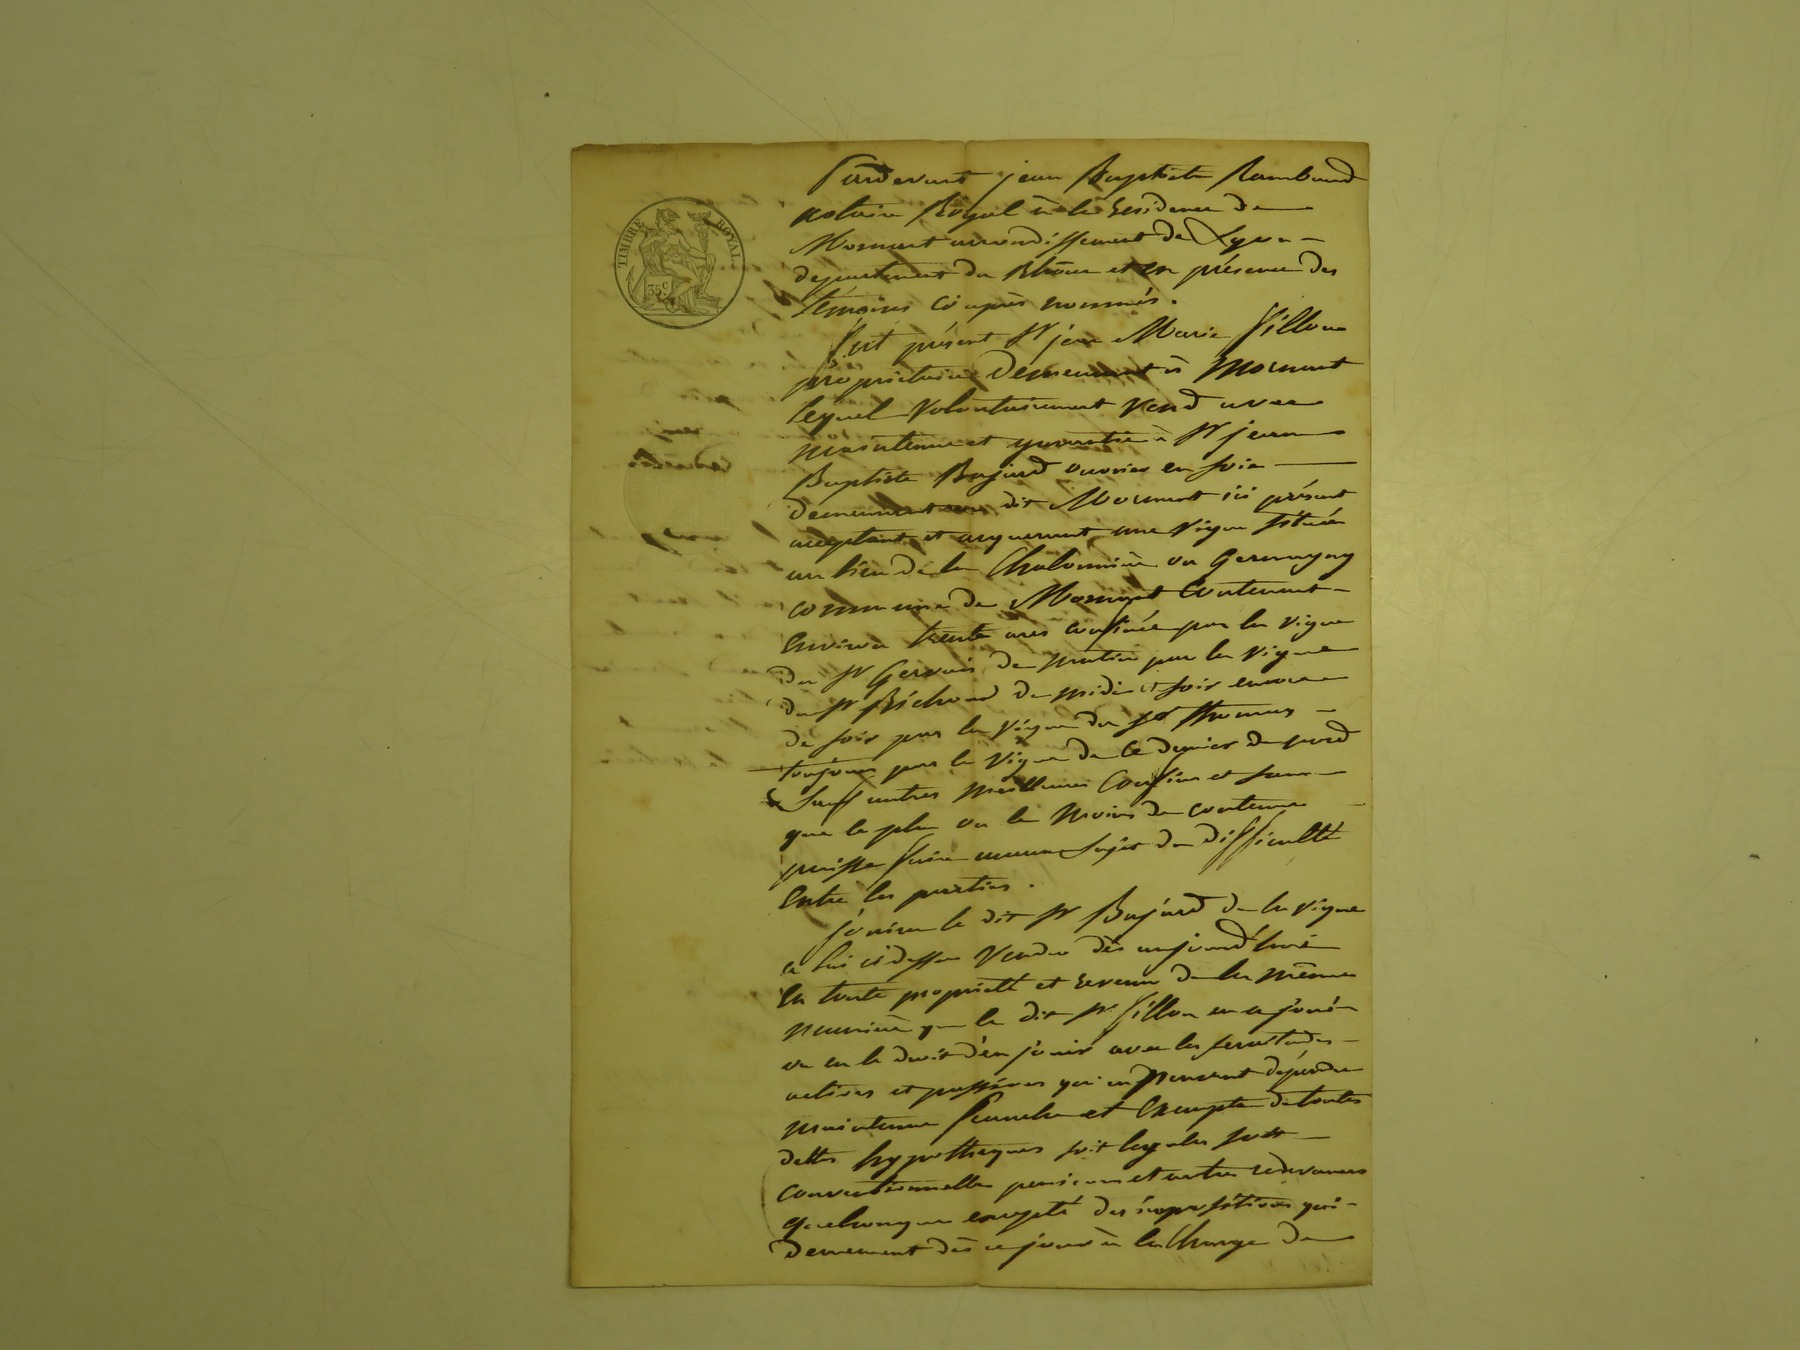 TIMBRE ROYAL
35 c
Pardevant jean Baptiste Rambaud
notaire Royal à la residence de
Mornant arrondissement de Lyon
departement du Rhône et en présence des
témoins ci après nommés.
fut présent Sr jean Marie fillon
propriétaire demeurant à Mornant
lequel volontairement vend avec
maintenue et garantie à Sr jean
Baptiste Bajard ouvrier en soie
demeurant au dit Mornant ici présent
acceptant et acquerant une vigne située
au lieu de la Chalonnière ou Germagny
commune de Mornant contenant
environ trente ares confinée par la vigne
du Sr Gervais de matin par la vigne
du Sr Bichard de midi et soir encore
de soir par la vigne du Sr thomas
toujours par la vigne de ce dernier de nord
sauf autres meilleures confins et sans
que le plus ou le moins de contenue
puisse faire aucun sujet de difficulté
entre les parties.
jouira le dit Sr Bajard de la vigne
a lui ci dessus vendue dès aujourd'hui
en toute propriété et revenu de la même
manière que le dit Sr fillon en a joui
ou eu le droit d'en jouir avec les servitudes
actives et passives qui en peuvent dépendre
maintenue franche et exempte de toutes
dettes hypotheques soit legales soit
conventionnelles pensions et autres redevances
quelconques excepté des impositions qui
demeurent dès ce jour à la charge de